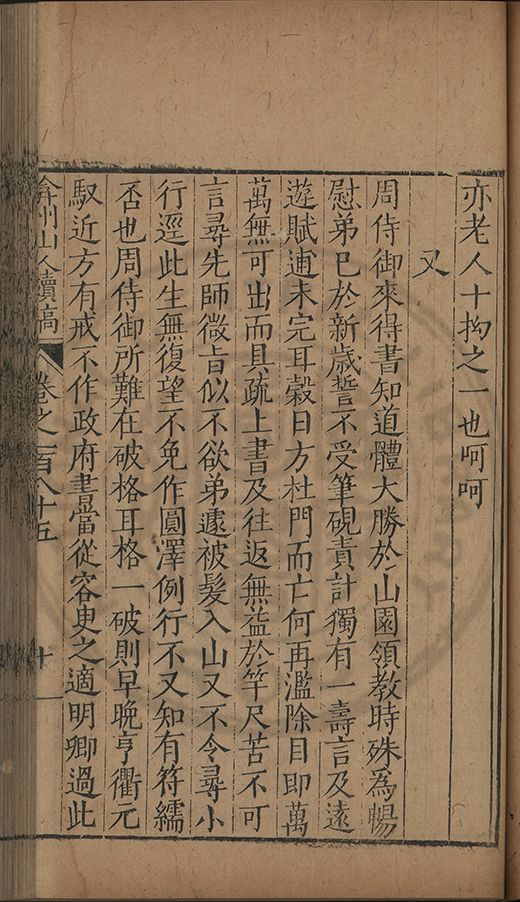 亦老人十拗之一也呵呵
又
周侍御來得書知道體大勝於山園領教時殊為暢
慰弟已於新歲誓不受筆硯責計獨有一壽言及遠
遊賦逋未完耳穀日方杜門而亡何再濫除目即萬
萬無可出而具疏上書及往返無益於竿尺苦不可
言尋先師微旨似不欲弟遽被髮入山又不令尋小
行逕此生無復望不免作圓澤例行不又知有符繻
否也周侍御所難在破格耳格一破則早晚亨衢元
馭近方有戒不作政府書當從容更之適明卿過此
弇州山人續稿 卷之一百八十五 十